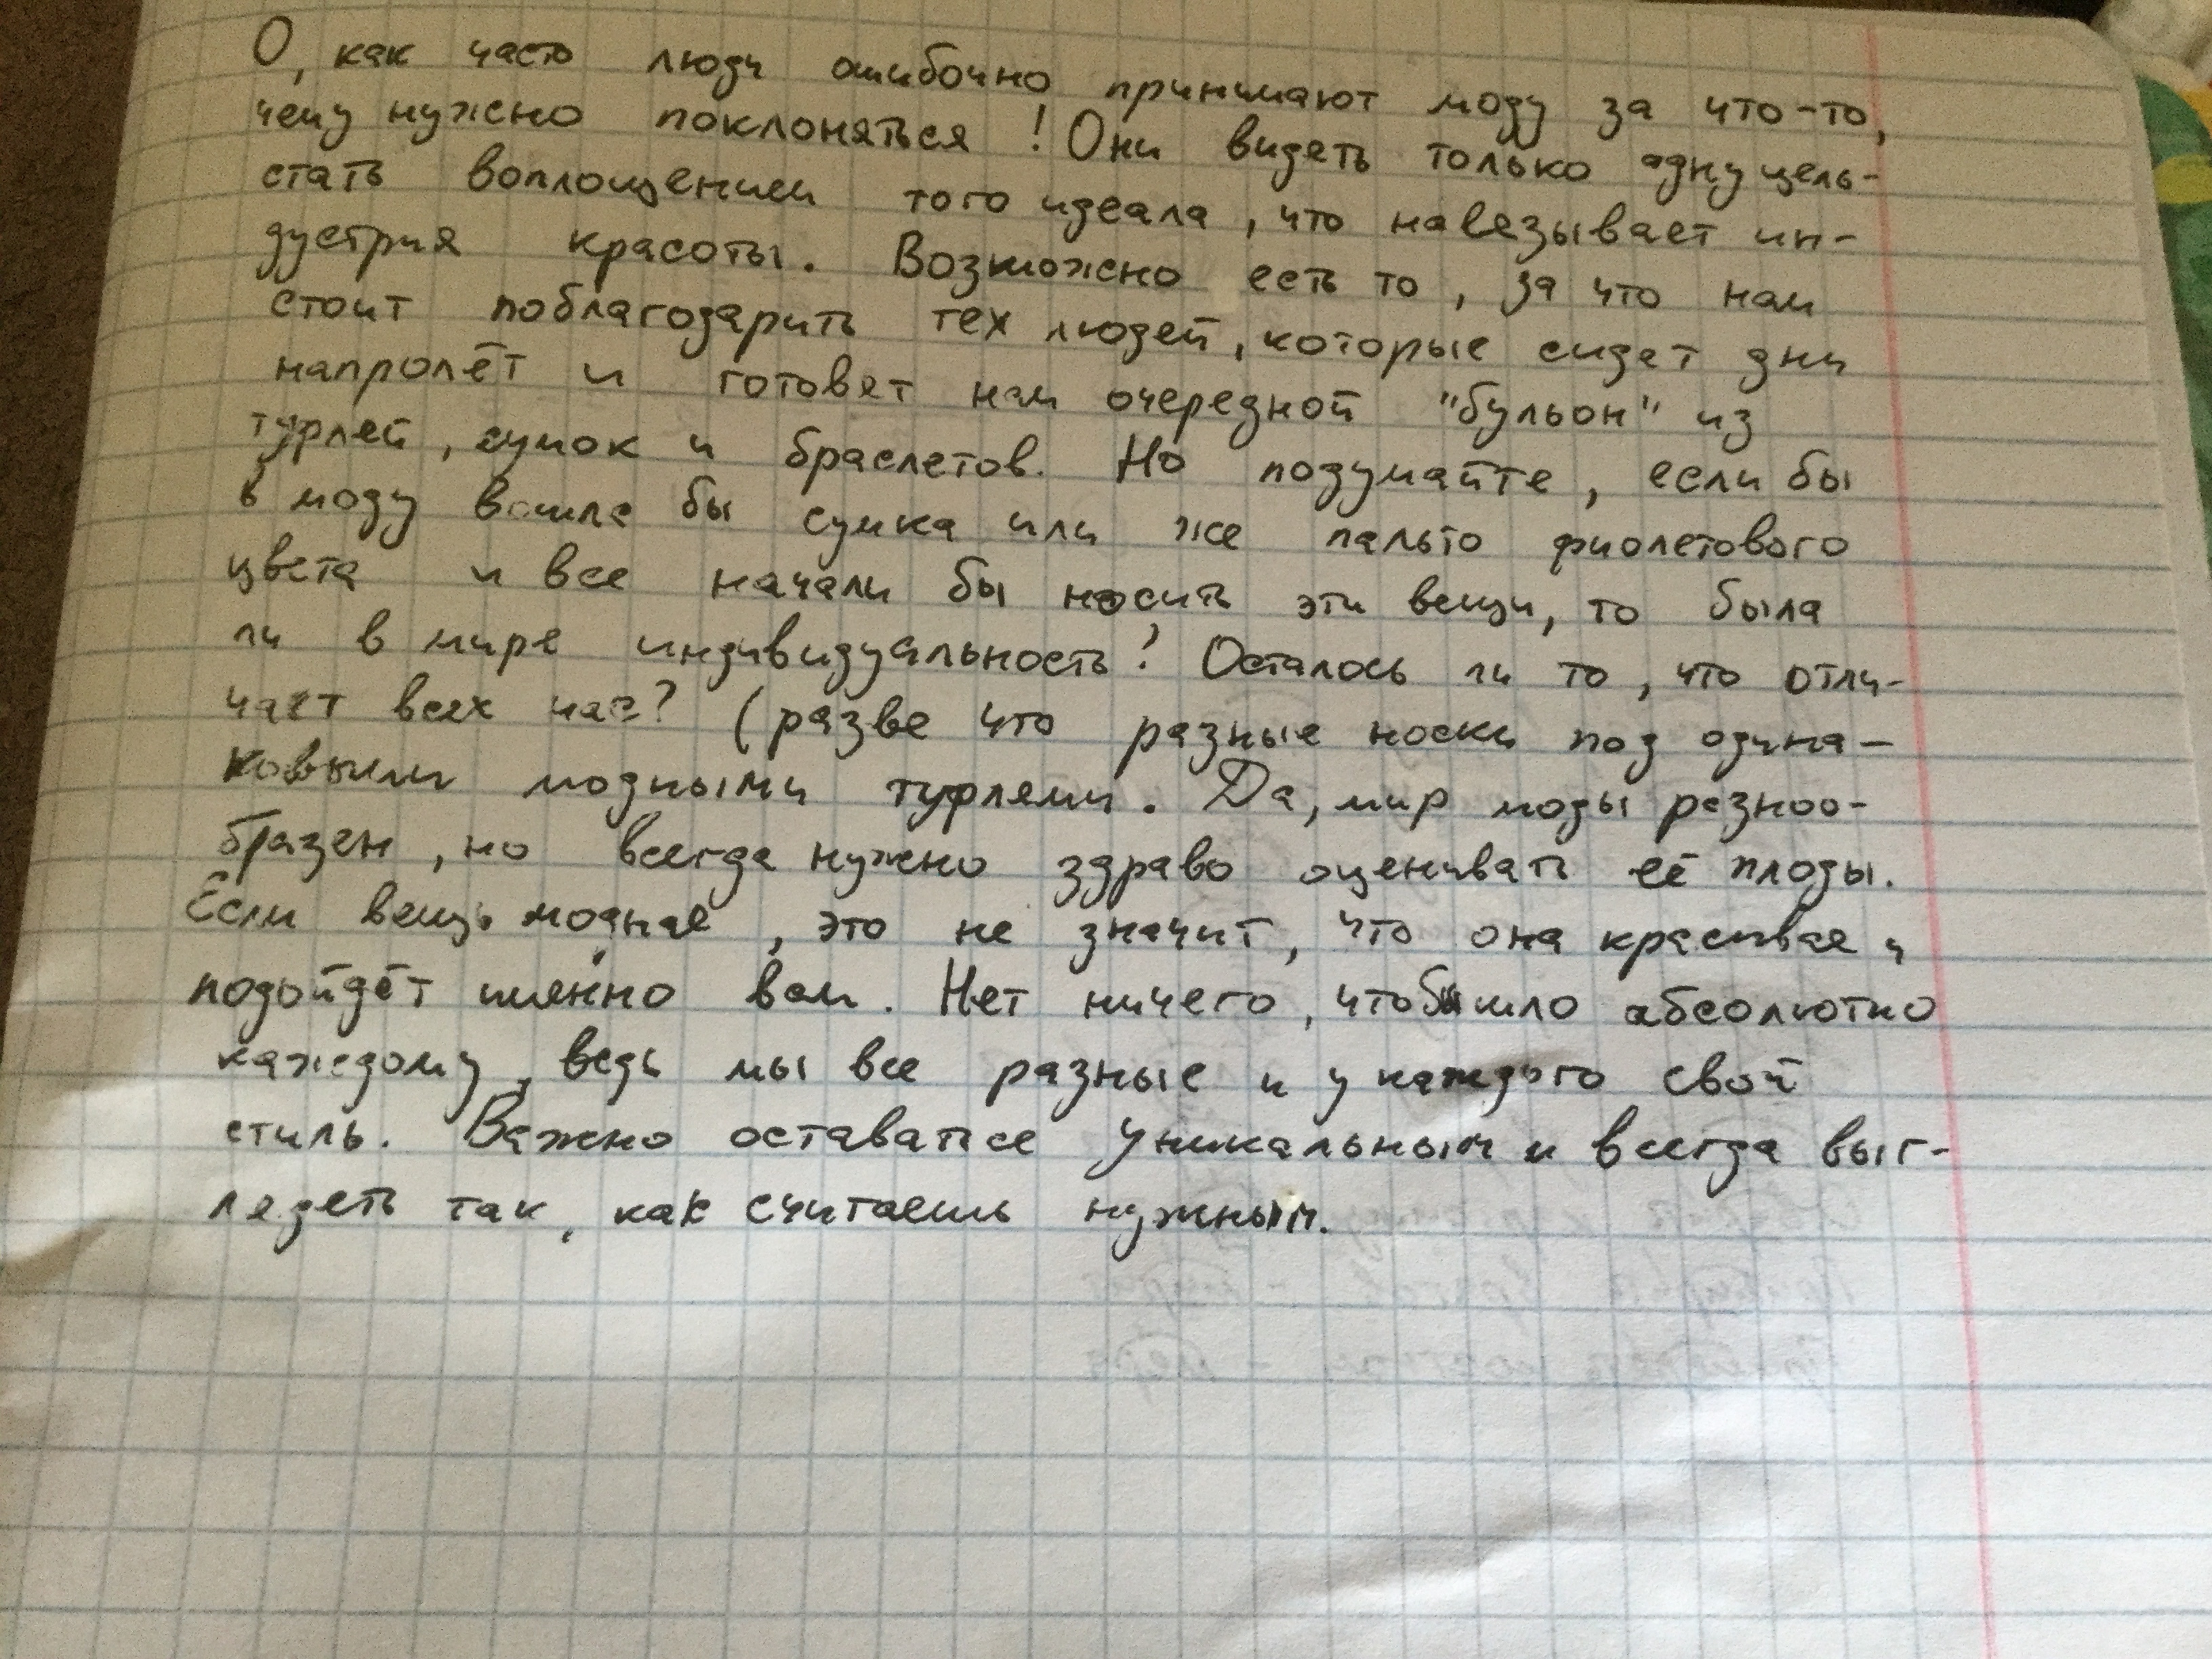 О, как часто люди ошибочно принимают моду за что-то,
чему нужно поклоняться! Они видеть только одну цель-
стать воплощением того идеала, что навязывает ин-
дустрия красоты. Возможно есть то, за что нам
стоит поблагодарить тех людей, которые сидят дни
напролёт и готовят нам очередной "бульон" из
туфлей, сумок и браслетов. Но подумайте, если бы
в моду вошла бы сумка или же пальто фиолетового
цвета и все начали бы носить эти вещи, то была
ли в мире индивидуальность? Осталось ли то, что отли-
чает всех нас? (разве что разные носки под одина-
ковыми модными туфлями. Да, мир моды разноо-
бразен, но всегда нужно здраво оценивать её плоды.
Если вещь модная, это не значит, что она красивая и
подойдёт именно вам. Нет ничего, что бы шло абсолютно
каждому, ведь мы все разные и у каждого свой
стиль. Важно оставаться уникальным и всегда выг-
лядеть так, как считаешь нужным.